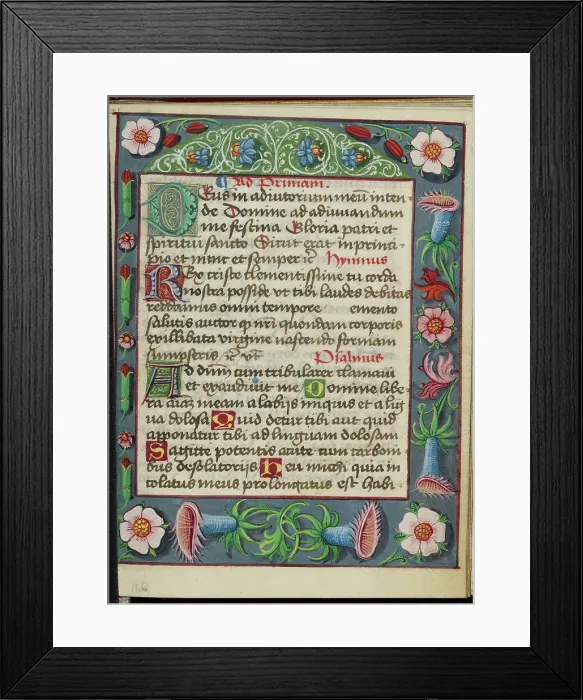 Ad Primam.
Deus in adiutoriũ meũ inten-
de Domine ad adiuuandum
me festina Gloria patri et
spiritui sancto Sicut erat in princi-
pio et nunc et semper ꝛc Hymnus
Rex criste clementissime tu corda
nostra posside vt tibi laudes debitas
reddamus omni tempore emento
salutis auctor ꝙ nr̃i quondam corporis
ex illibata virgine nascendo formam
sumpseris ꝛc vt Psalmus
Ad dñm cum tribularer clamaui
et exaudiuit me Domine libe-
ra aĩaz meam a labijs iniquis et a lig
ua dolosa Quid detur tibi aut quid
apponatur tibi ad linguam dolosam
Sagitte potentis acute cum carboni
bus desolatorijs Heu michi quia in
colatus meus prolongatus est habi